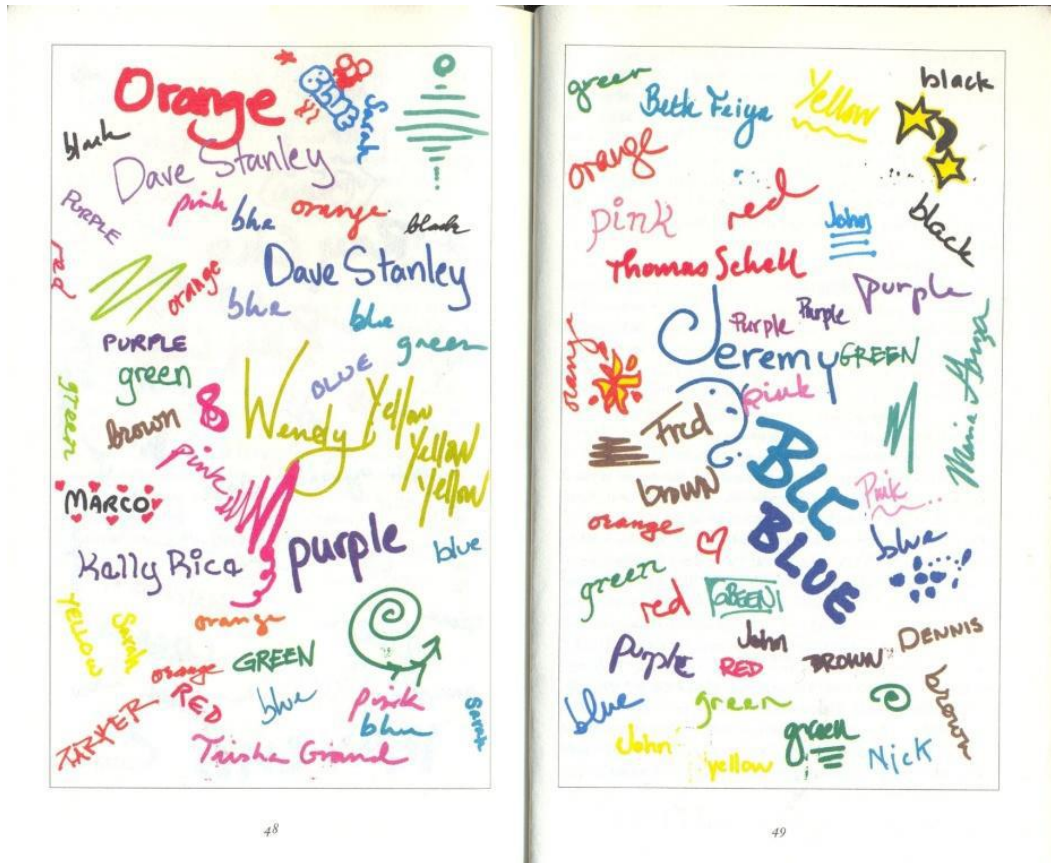 Orange
BLUE
Sarah
black
Dave Stanley
PURPLE
pink
blue
orange
black
red
orange
Dave Stanley
blue
blue
green
PURPLE
green
BLUE
green
brown
Wendy
Yellow
Yellow
Yellow
pink
MARCO
Kelly Rice
purple
blue
YELLOW
Sarah
orange
orange
GREEN
RED
blue
pink
blue
Sarah
Trisha Grand
48
green
Beth Feiga
Yellow
black
orange
pink
red
John
black
Thomas Schell
purple
Purple
Purple
Jeremy
GREEN
orange
pink
Fred
brown
BLC
BLUE
Pink
orange
blue
green
red
GREEN
John
DENNIS
Purple
RED
BROWN
brown
blue
green
John
yellow
green
Nick
49